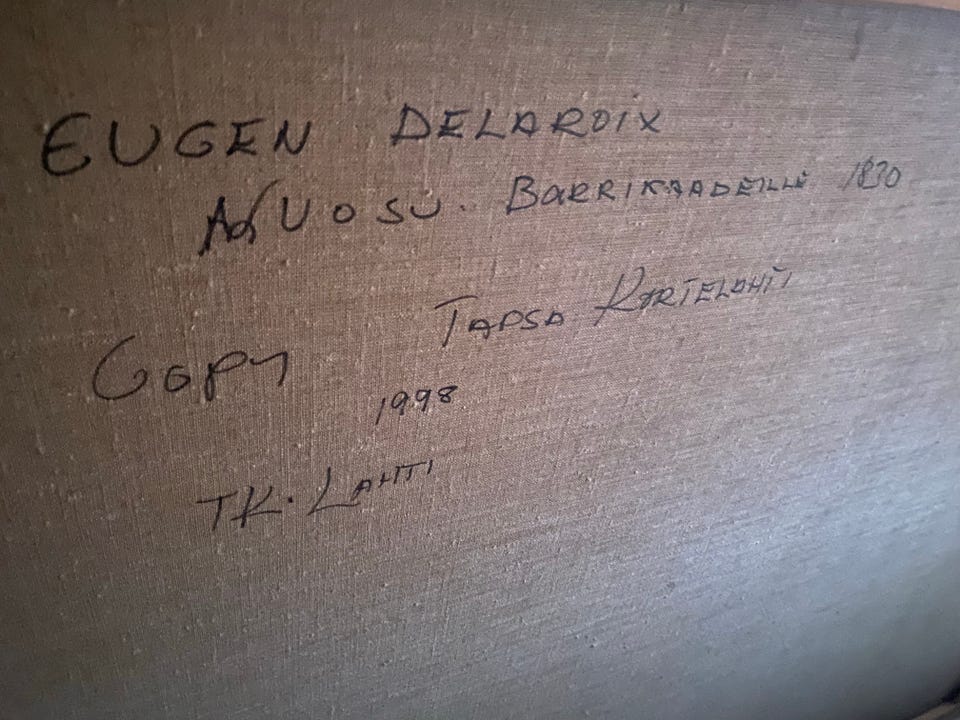 EUGEN DELAROIX
OPUOSU. BARRIKAADEILLE 1830
COPY TAPSA KORTELAHTI
1998
TK. LAHTI